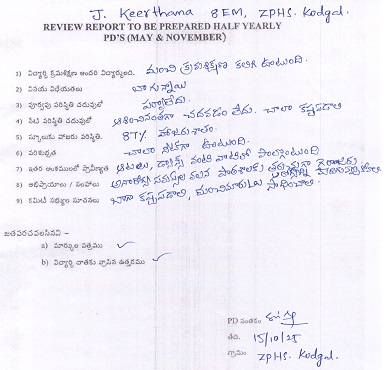 J. Keerthana 8EM, ZPHS. Kodgal.
REVIEW REPORT TO BE PREPARED HALF YEARLY
PD'S (MAY & NOVEMBER)
1) విద్యార్థి క్రమశిక్షణ అందరి విద్యార్థులలో. మంచి క్రమశిక్షణ కలిగి ఉంటుంది.
2) వినయ విధేయతలు బాగున్నాయి
3) పూర్వపు పరిస్థితి చదువులో పర్వాలేదు.
4) నేటి పరిస్థితి చదువులో ఆశించినంతగా చదవడం లేదు. చాలా కష్టపడాలి
5) స్కూలుకు హాజరు పరిస్థితి. 87% హాజరుశాతం.
6) పరిశుభ్రత చాలా నీట్‌గా ఉంటుంది.
7) ఇతర అంశములలో ప్రావీణ్యత ఆటలు, డ్యాన్స్ వంటి వాటిలో పాల్గొంటుంది
8) అభిప్రాయాలు / సలహాలు అనారోగ్య సమస్యల వలన పాఠశాలకు తరచుగా
9) కమిటీ సభ్యుల సూచనలు బాగా కష్టపడాలి, మంచి మార్కులు సాధించాలి.
జతపరచవలసినవి –
a) మార్కుల పత్రము ✓
b) విద్యార్థి దాతకు వ్రాసిన ఉత్తరము ✓
PD సంతకం
తేది. 15/10/25
గ్రామం ZPHS. Kodgal.